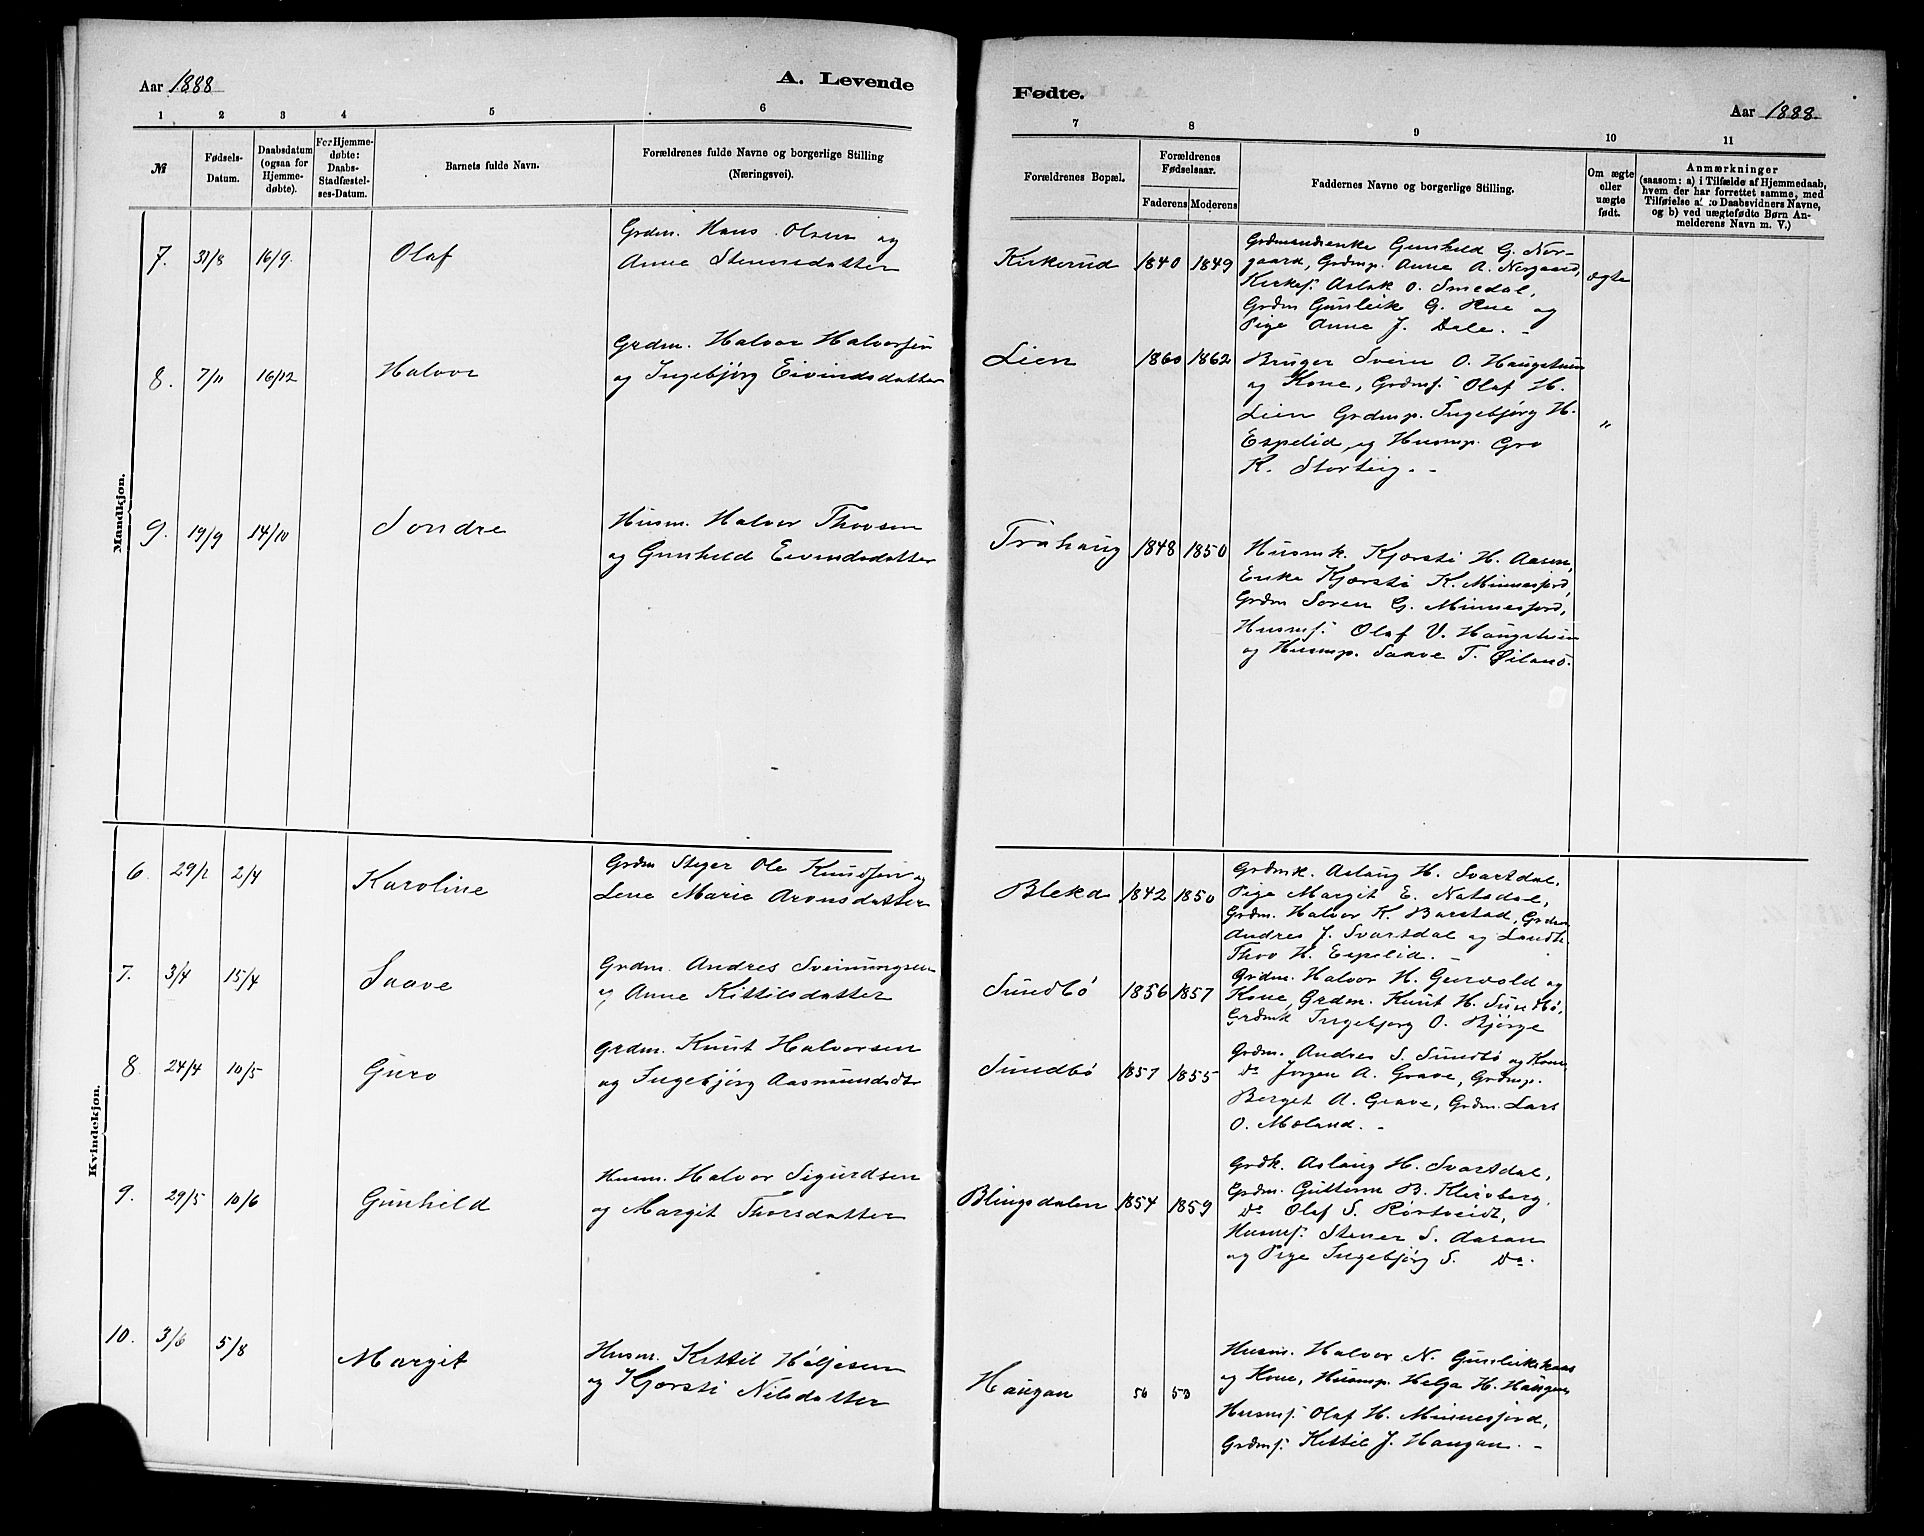 Aar 1888
A. Levende
1 2 3 4 5 6
№
Fødsels-
Datum.
Daabsdatum
(ogsaa for
Hjemme-
døbte).
For Hjemme-
døbte:
Daabs-
Stadfæstel-
ses-Datum.
Barnets fulde Navn.
Forældrenes fulde Navne og borgerlige Stilling
(Næringsvei).
Mandkjøn.
7. 31/8 16/9. Olaf
Grdm. Hans Olsen og
Anne Stenersdatter
8. 7/11 16/12 Halvor
Grdm. Halvor Halvorsen
og Ingebjørg Eivindsdatter
9. 19/9 14/10 Sondre
Husm. Halvor Thovsen
og Gunhild Eivindsdatter
Kvindekjøn.
6. 29/2 2/4 Karoline
Grdm Steger Ole Knudsen og
Lene Marie Aronsdatter
7. 3/4 15/4 Saave
Grdm. Andres Sveinungsen
og Anne Kittilsdatter
8. 24/4 10/5 Guro
Grdm. Knut Halvorsen
og Ingebjørg Aasmundsdtr
9. 29/5 10/6 Gunhild
Husm. Halvor Sigurdsen
og Margit Thorsdatter
10. 3/6 5/8 Margit
Husm. Kittil Høljesen
og Kjørsti Nilsdatter
Fødte.
Aar 1888
7 8 9 10 11
Forældrenes Bopæl.
Forældrenes
Fødselsaar.
Faderens Moderens
Faddernes Navne og borgerlige Stilling.
Om ægte
eller
uægte
født.
Anmærkninger
(saasom: a) i Tilfælde af Hjemmedaab,
hvem der har forrettet samme, med
Tilføielse af to Daabsvidners Navne,
og b) ved uægtefødte Børn An-
melderens Navn m. V.)
Kirkerud 1840 1849
Grdmandsenke Gunhild G. Nor-
gaard, Grdmp. Anne A. Norgaard,
Kirkes. Aslak O. Smedal,
Grdm Gunleik G. Hue og
Pige Anne J. Dale.
ægte
Lien 1860 1862
Bruger Svein O. Haugstuen
og Kone, Grdms. Olaf H.
Lien Grdmp. Ingebjørg H.
Espelid, og Husmp. Gro
K. Storteig. -
"
Tråhaug 1848 1850
Husmk. Kjørsti H. Aasen,
Enke Kjørsti K. Minnesjord,
Grdm Soren G. Minnesjord,
Husms. Olaf V. Haugstuen
og Husmp. Saave T. Øiland.
Bleka 1842 1850
Grdmk. Aslaug H. Svartdal,
Pige Margit E. Natadal,
Grdm. Halvor K. Barstad, Grdm
Andres J. Svartdal og Landh.
Thov H. Espelid. -
Sundbö 1856 1857
Grdm. Halvor H. Gurvold og
Kone, Grdm. Knut H. Sundbö,
Grdmk Ingebjorg O. Bjørge
Sundbö 1857 1855
Grdm. Andres S. Sundbö og Kone
Do Jorgen A. Grave, Grdmp.
Berget A. Grave, Grdm. Lars
O. Moland. -
Blingsdalen 1854 1859
Grdk. Aslaug H. Svartdal,
Grdm. Guttorm B. Kleivberg,
Do Olaf S. Rørtveidt,
Husms. Stener S. Aasan
og Pige Ingebjørg S. Do.
Haugan 56 53
Husm. Halvor N. Gunleikskaas
og Kone, Husmp. Helga H. Haugen
Husms. Olaf H. Minnesjord,
Grdms. Kittil J. Haugan. -